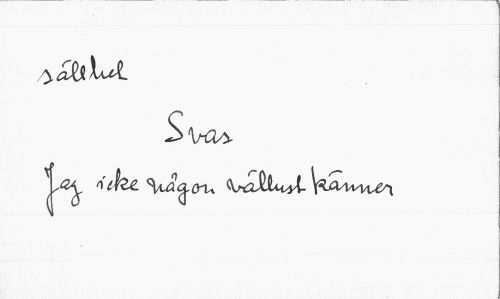 sällhet
Svas
Jag icke någon vällust känner